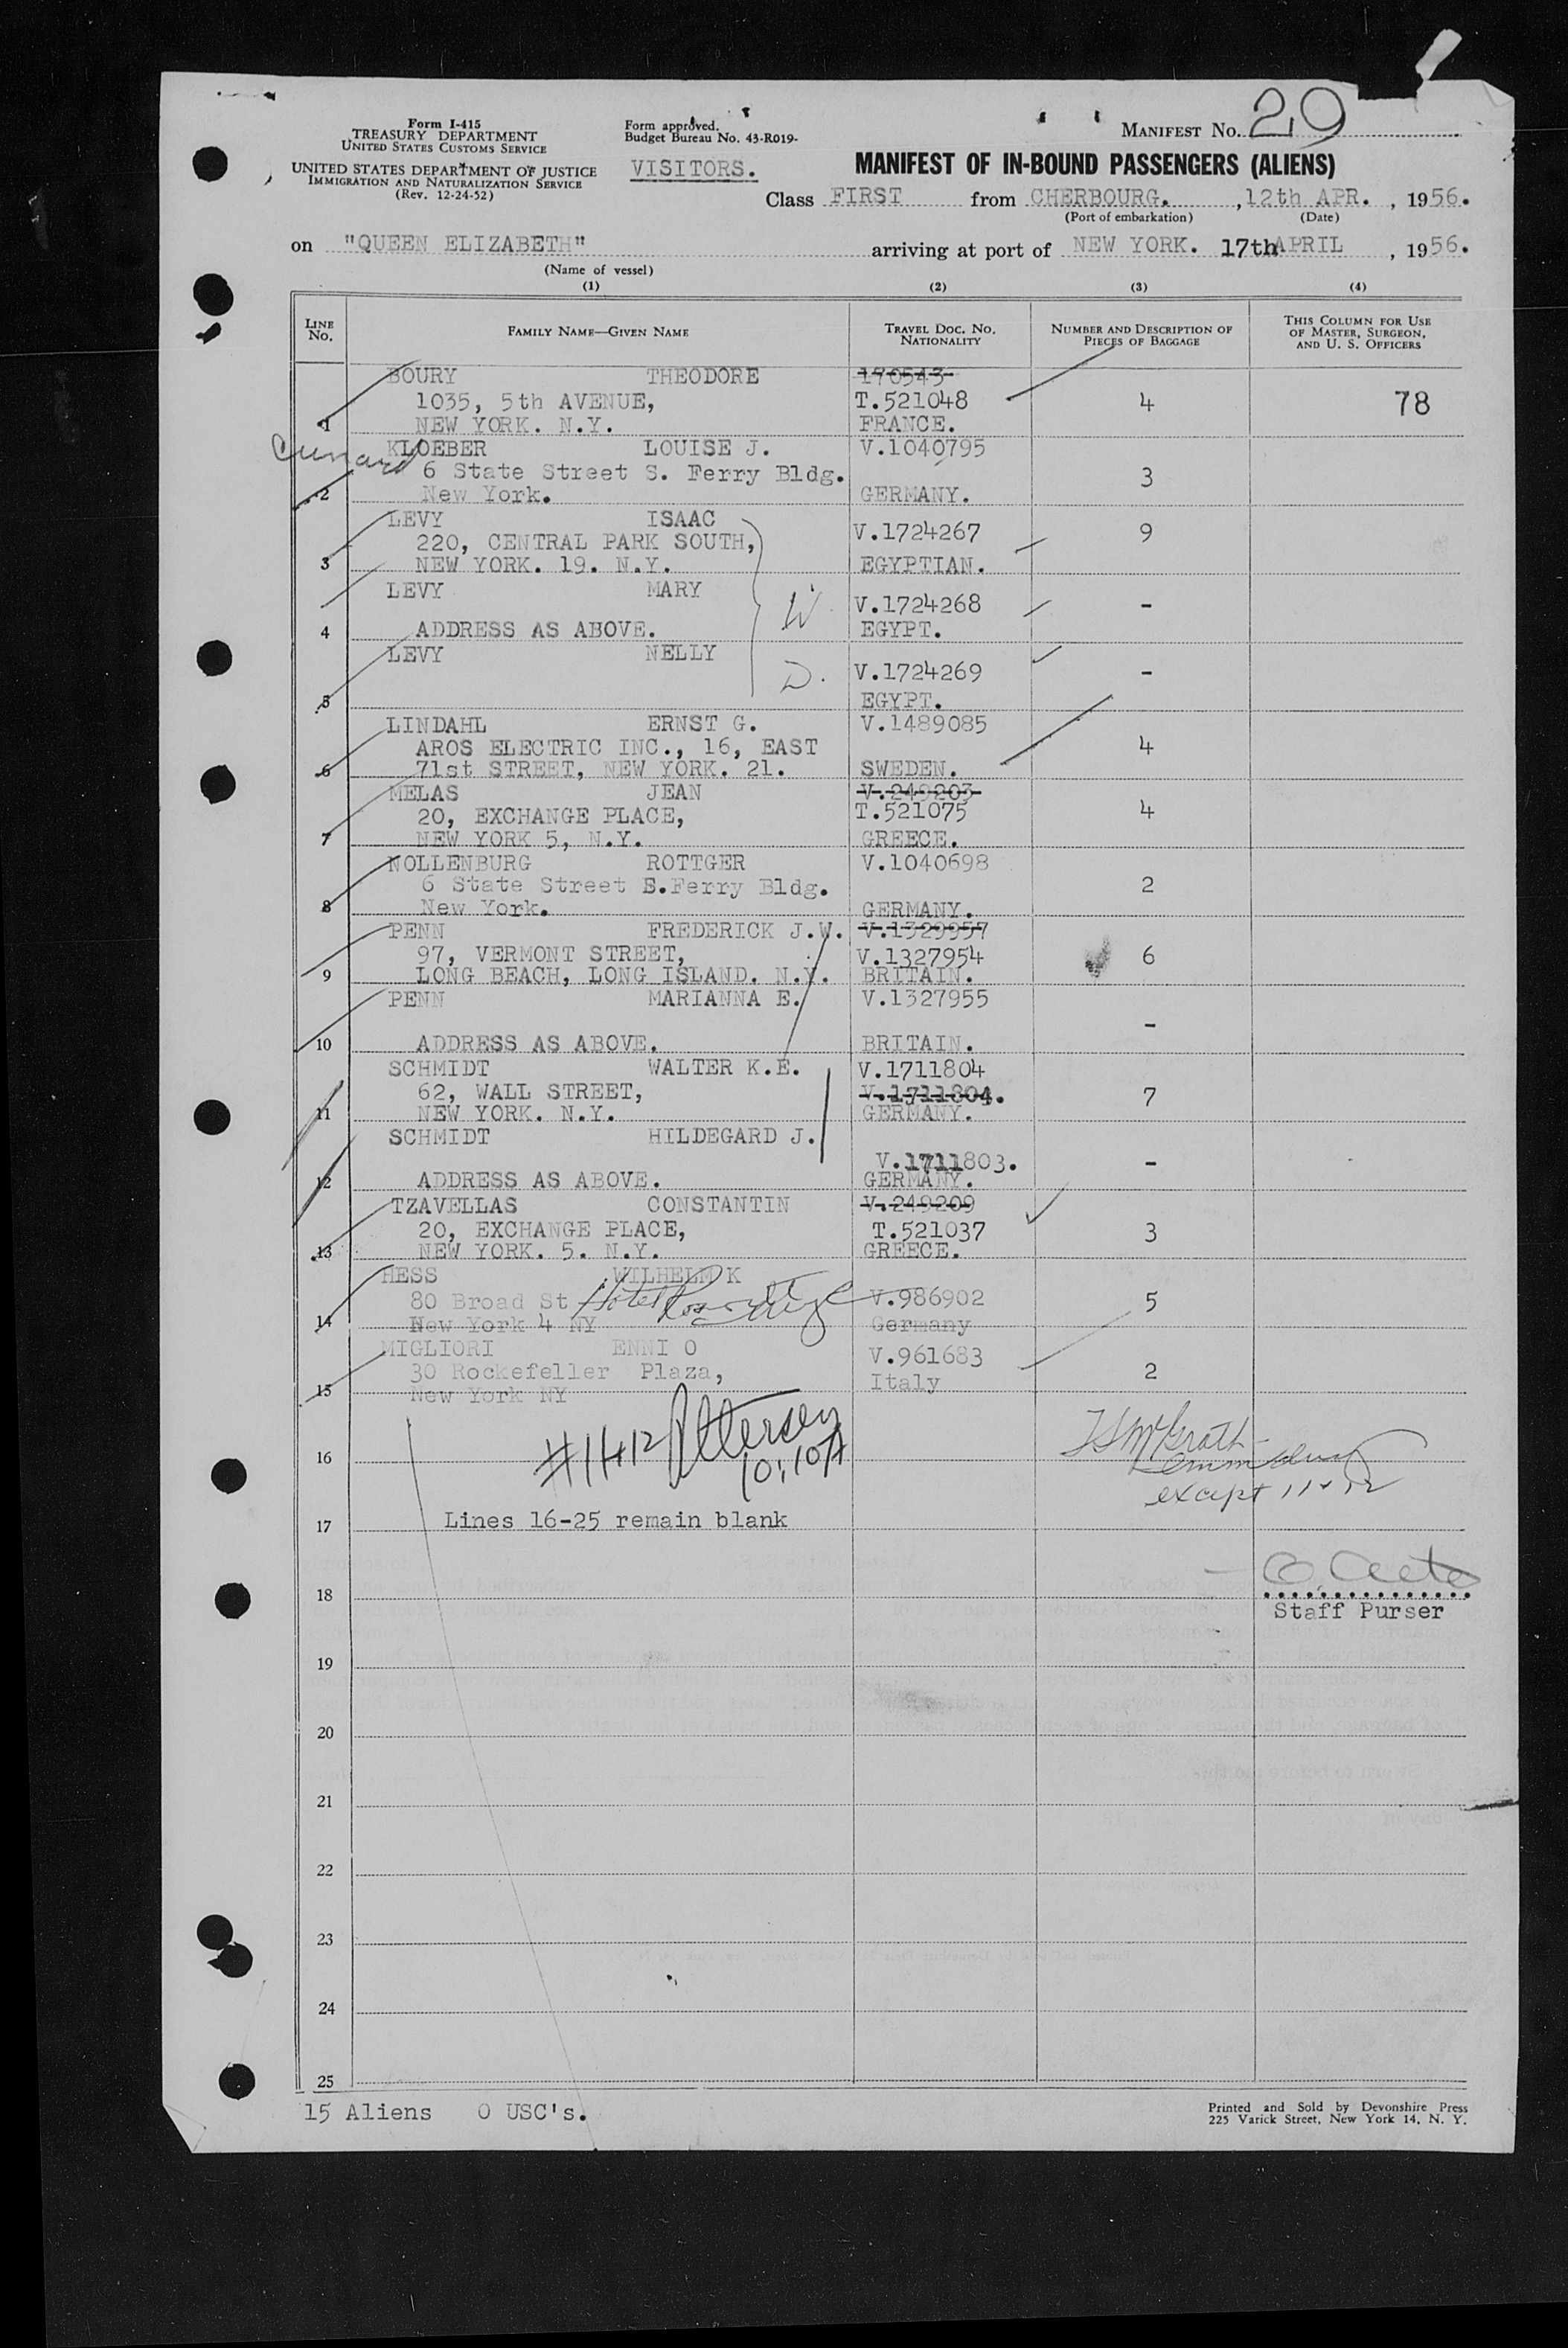 Form I-415
TREASURY DEPARTMENT
UNITED STATES CUSTOMS SERVICE
UNITED STATES DEPARTMENT OF JUSTICE
IMMIGRATION AND NATURALIZATION SERVICE
(Rev. 12-24-52)
Form approved.
Budget Bureau No. 43-R019-
VISITORS.
MANIFEST NO. 29
MANIFEST OF IN-BOUND PASSENGERS (ALIENS)
Class FIRST from CHERBOURG. , 12th APR. , 1956.
(Port of embarkation) (Date)
on "QUEEN ELIZABETH" arriving at port of NEW YORK. 17th APRIL , 1956.
(Name of vessel)
(1) (2) (3) (4)
LINE NO. FAMILY NAME—GIVEN NAME TRAVEL DOC. NO. NATIONALITY NUMBER AND DESCRIPTION OF PIECES OF BAGGAGE THIS COLUMN FOR USE OF MASTER, SURGEON, AND U. S. OFFICERS
BOURY THEODORE 170543
1035, 5th AVENUE, T.521048 4 78
1 NEW YORK. N.Y. FRANCE.
Cunard KLOEBER LOUISE J. V.1040795
6 State Street S. Ferry Bldg. 3
2 New York. GERMANY.
LEVY ISAAC
220, CENTRAL PARK SOUTH, V.1724267 9
3 NEW YORK. 19. N.Y. EGYPTIAN.
LEVY MARY
W V.1724268 -
4 ADDRESS AS ABOVE. EGYPT.
LEVY NELLY
D. V.1724269 -
5 EGYPT.
LINDAHL ERNST G. V.1489085
AROS ELECTRIC INC., 16, EAST 4
6 71st STREET, NEW YORK. 21. SWEDEN.
MELAS JEAN V.249203
20, EXCHANGE PLACE, T.521075 4
7 NEW YORK 5, N.Y. GREECE.
NOLLENBURG ROTTGER V.1040698
6 State Street S.Ferry Bldg. 2
8 New York. GERMANY.
PENN FREDERICK J.W. V.1329957
97, VERMONT STREET, V.1327954 6
9 LONG BEACH, LONG ISLAND. N.Y. BRITAIN.
PENN MARIANNA E. V.1327955
-
10 ADDRESS AS ABOVE. BRITAIN.
SCHMIDT WALTER K.E. V.1711804
62, WALL STREET, V.1711804. 7
11 NEW YORK. N.Y. GERMANY.
SCHMIDT HILDEGARD J.
V.1711803. -
12 ADDRESS AS ABOVE. GERMANY.
TZAVELLAS CONSTANTIN V.249209
20, EXCHANGE PLACE, T.521037 3
13 NEW YORK. 5. N.Y. GREECE.
HESS WILHELM K
80 Broad St Hotel V.986902 5
14 New York 4 NY Germany
MIGLIORI ENNI O V.961683
30 Rockefeller Plaza, Italy 2
15 New York NY
#1412 Pettersen
10:10A
T S McGrath
16
except 11 + 12
17 Lines 16-25 remain blank
18
Staff Purser
19
20
21
22
23
24
25
15 Aliens 0 USC's.
Printed and Sold by Devonshire Press
225 Varick Street, New York 14, N. Y.